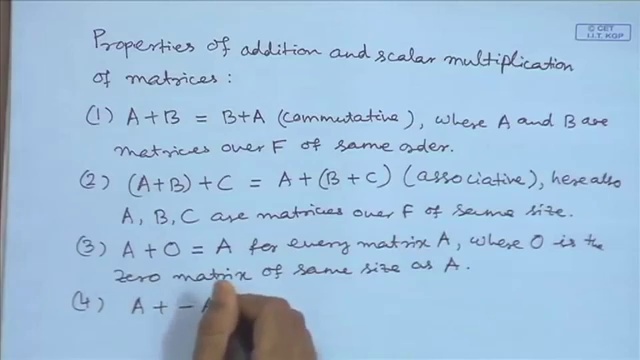 © CET
I.I.T. KGP
Properties of addition and scalar multiplication
of matrices:
(1) A+B = B+A (commutative), where A and B are
matrices over F of same order.
(2) (A+B)+C = A+(B+C) (associative), here also
A, B, C are matrices over F of same size.
(3) A+O = A for every matrix A, where O is the
zero matrix of same size as A.
(4) A + - A